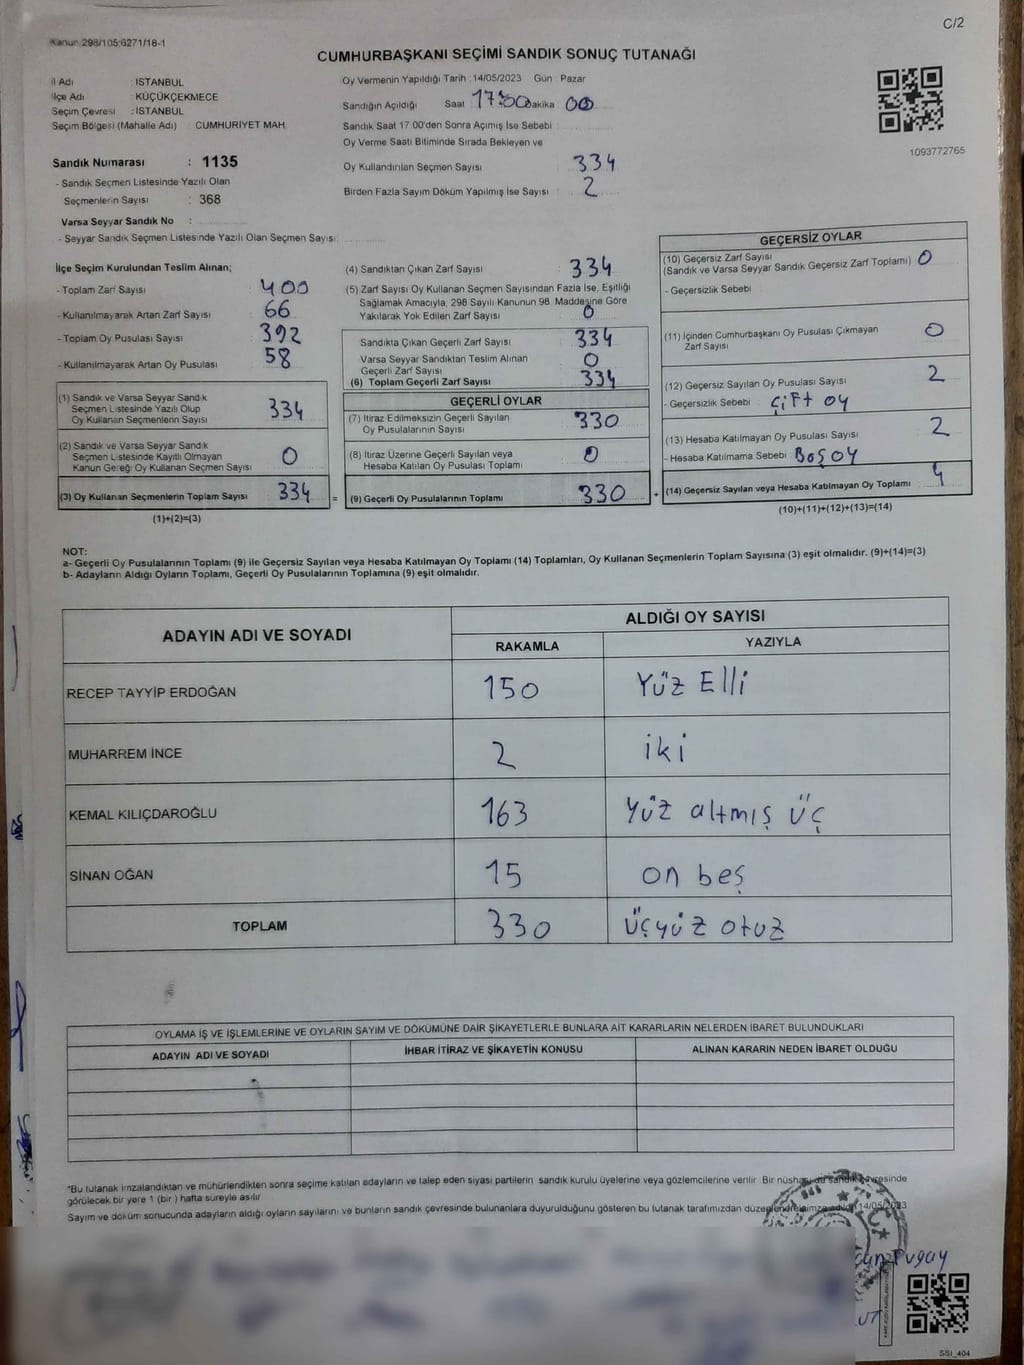 C/2
Kanun 298/105;6271/18-1
CUMHURBAŞKANI SEÇİMİ SANDIK SONUÇ TUTANAĞI
İl Adı : İSTANBUL
İlçe Adı : KÜÇÜKÇEKMECE
Seçim Çevresi : İSTANBUL
Seçim Bölgesi (Mahalle Adı) : CUMHURİYET MAH.
Sandık Numarası : 1135
- Sandık Seçmen Listesinde Yazılı Olan
Seçmenlerin Sayısı : 368
Varsa Seyyar Sandık No :
- Seyyar Sandık Seçmen Listesinde Yazılı Olan Seçmen Sayısı:
Oy Vermenin Yapıldığı Tarih : 14/05/2023 Gün : Pazar
Sandığın Açıldığı Saat 17:00 Dakika 00
Sandık Saat 17:00'den Sonra Açımış İse Sebebi :
Oy Verme Saati Bitiminde Sırada Bekleyen ve
Oy Kullandırılan Seçmen Sayısı : 334
Birden Fazla Sayım Döküm Yapılmış İse Sayısı : 2
1093772765
İlçe Seçim Kurulundan Teslim Alınan;
- Toplam Zarf Sayısı : 400
- Kullanılmayarak Artan Zarf Sayısı : 66
- Toplam Oy Pusulası Sayısı : 392
- Kullanılmayarak Artan Oy Pusulası : 58
(1) Sandık ve Varsa Seyyar Sandık
Seçmen Listesinde Yazılı Olup
Oy Kullanan Seçmenlerin Sayısı : 334
(2) Sandık ve Varsa Seyyar Sandık
Seçmen Listesinde Kayıtlı Olmayan
Kanun Gereği Oy Kullanan Seçmen Sayısı : 0
(3) Oy Kullanan Seçmenlerin Toplam Sayısı : 334 =
(1)+(2)=(3)
(4) Sandıktan Çıkan Zarf Sayısı : 334
(5) Zarf Sayısı Oy Kullanan Seçmen Sayısından Fazla İse, Eşitliği
Sağlamak Amacıyla, 298 Sayılı Kanunun 98. Maddesine Göre
Yakılarak Yok Edilen Zarf Sayısı : 0
Sandıkta Çıkan Geçerli Zarf Sayısı : 334
Varsa Seyyar Sandıktan Teslim Alınan
Geçerli Zarf Sayısı : 0
(6) Toplam Geçerli Zarf Sayısı : 334
GEÇERLİ OYLAR
(7) İtiraz Edilmeksizin Geçerli Sayılan
Oy Pusulalarının Sayısı : 330
(8) İtiraz Üzerine Geçerli Sayılan veya
Hesaba Katılan Oy Pusulası Toplamı : 0
(9) Geçerli Oy Pusulalarının Toplamı : 330 +
GEÇERSİZ OYLAR
(10) Geçersiz Zarf Sayısı : 0
(Sandık ve Varsa Seyyar Sandık Geçersiz Zarf Toplamı)
- Geçersizlik Sebebi :
(11) İçinden Cumhurbaşkanı Oy Pusulası Çıkmayan
Zarf Sayısı : 0
(12) Geçersiz Sayılan Oy Pusulası Sayısı : 2
- Geçersizlik Sebebi : Çift oy
(13) Hesaba Katılmayan Oy Pusulası Sayısı : 2
- Hesaba Katılmama Sebebi : Boş oy
(14) Geçersiz Sayılan veya Hesaba Katılmayan Oy Toplamı : 4
(10)+(11)+(12)+(13)=(14)
NOT:
a- Geçerli Oy Pusulalarının Toplamı (9) ile Geçersiz Sayılan veya Hesaba Katılmayan Oy Toplamı (14) Toplamları, Oy Kullanan Seçmenlerin Toplam Sayısına (3) eşit olmalıdır. (9)+(14)=(3)
b- Adayların Aldığı Oyların Toplamı, Geçerli Oy Pusulalarının Toplamına (9) eşit olmalıdır.
ADAYIN ADI VE SOYADI ALDIĞI OY SAYISI
RAKAMLA YAZIYLA
RECEP TAYYİP ERDOĞAN 150 Yüz Elli
MUHARREM İNCE 2 iki
KEMAL KILIÇDAROĞLU 163 yüz altmış üç
SİNAN OĞAN 15 on beş
TOPLAM 330 üçyüz otuz
OYLAMA İŞ VE İŞLEMLERİNE VE OYLARIN SAYIM VE DÖKÜMÜNE DAİR ŞİKAYETLERLE BUNLARA AİT KARARLARIN NELERDEN İBARET BULUNDUKLARI
ADAYIN ADI VE SOYADI İHBAR İTİRAZ VE ŞİKAYETİN KONUSU ALINAN KARARIN NEDEN İBARET OLDUĞU
*Bu tutanak imzalandıktan ve mühürlendikten sonra seçime katılan adayların ve talep eden siyasi partilerin sandık kurulu üyelerine veya gözlemcilerine verilir. Bir nüshası da sandık çevresinde
görülecek bir yere 1 (bir) hafta süreyle asılır
Sayım ve döküm sonucunda adayların aldığı oyların sayılarını ve bunların sandık çevresinde bulunanlara duyurulduğunu gösteren bu tutanak tarafımızdan düzenlendi imza edildi 14/05/2023
SSI_404